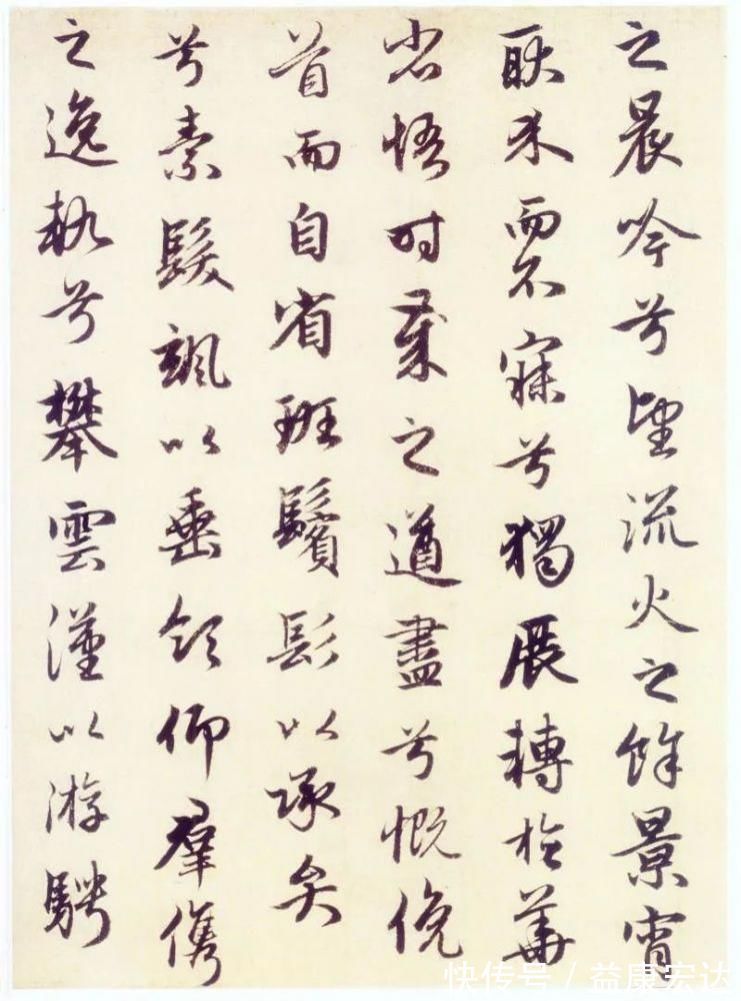 之晨吟兮望流火之餘景宵
耿介而不寐兮獨展轉於華
省悟時歲之遒盡兮慨俛
首而自省班鬢髟以承弁
兮素髮颯以垂領仰羣儁
之逸軌兮攀雲漢以游騁
快传号 / 益康宏达